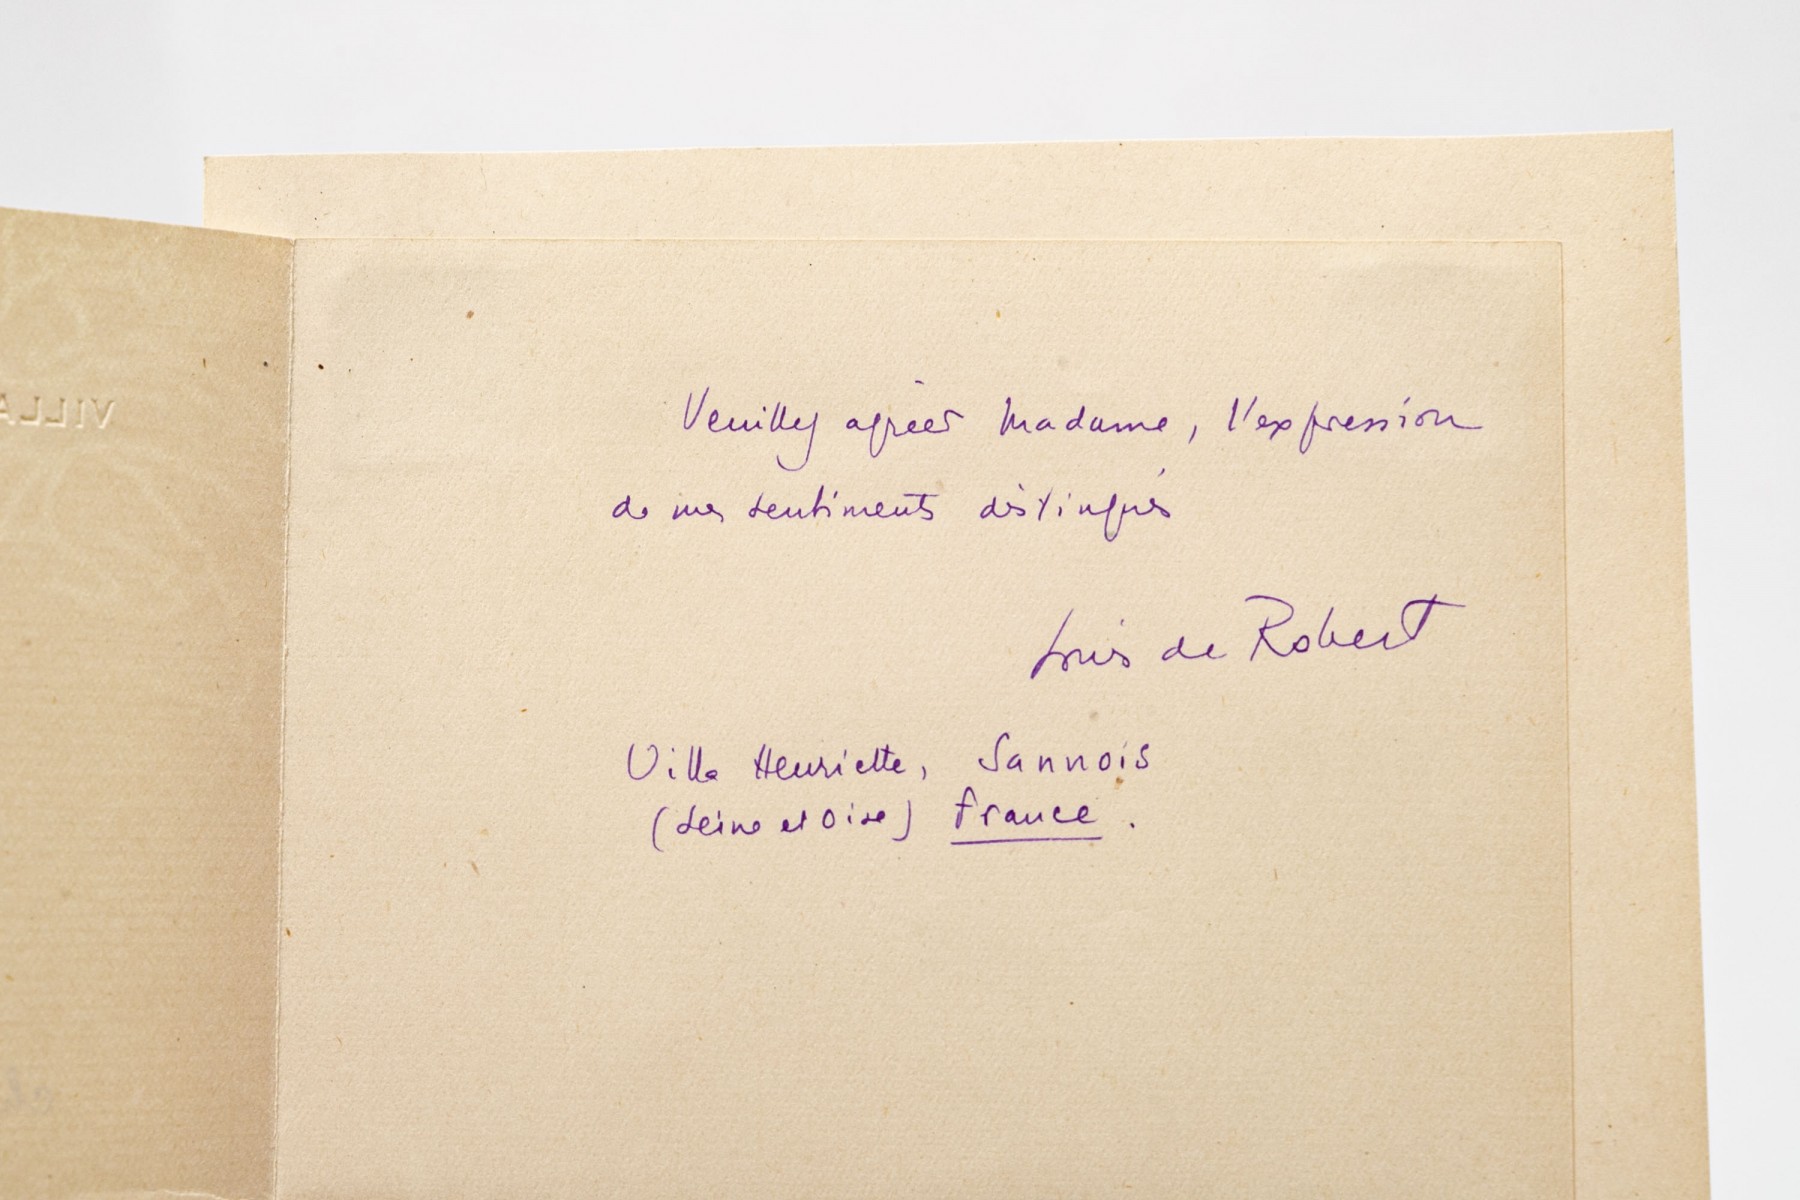 VILLA
Veuillez agréer Madame, l'expression
de mes sentiments distingués
Louis de Robert
Villa Henriette, Sannois
(Seine et Oise) France.